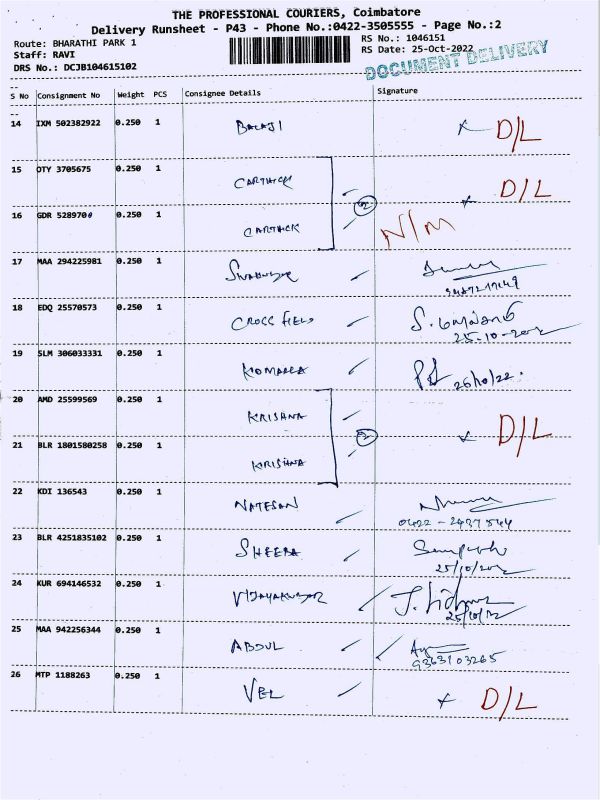 THE PROFESSIONAL COURIERS, Coimbatore
Delivery Runsheet - P43 - Phone No.:0422-3505555 - Page No.:2
Route: BHARATHI PARK 1
RS No.: 1046151
Staff: RAVI
RS Date: 25-Oct-2022
DRS No.: DCJB104615102
DOCUMENT DELIVERY
S No Consignment No Weight PCS Consignee Details Signature
14 IXM 502382922 0.250 1 BALAJI D/L
15 OTY 3705675 0.250 1 CARTHICK D/L
2
16 GDR 5289700 0.250 1 CARTHICK N/M
17 MAA 294225981 0.250 1
18 EDQ 25570573 0.250 1 CROSS FIELD
25-10-2022
19 SLM 306033331 0.250 1 KOMALA 26/10/22.
20 AMD 25599569 0.250 1 KRISHNA
2 D/L
21 BLR 1801580258 0.250 1 KRISHNA
22 KDI 136543 0.250 1 NATESAN
0422 - 2437544
23 BLR 4251835102 0.250 1 SHEEBA
25/10/2022
24 KUR 694146532 0.250 1 VIJAYAKUMAR
25/10/22
25 MAA 942256344 0.250 1 ABDUL
9363103265
26 MTP 1188263 0.250 1 VEL D/L